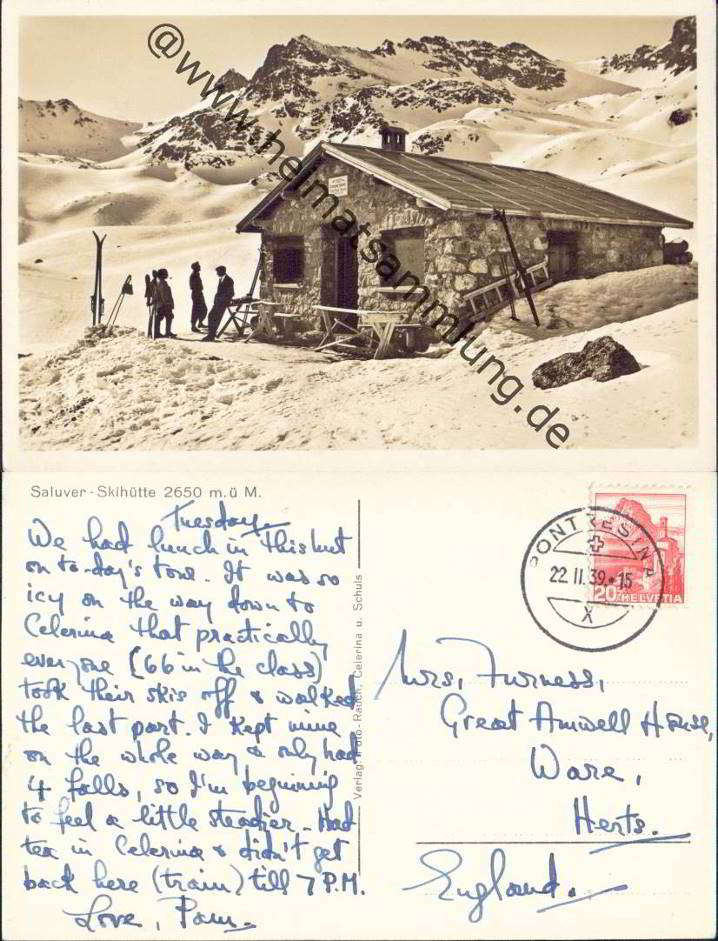 @www.heimatsammlung.de
Saluver-Skihütte 2650 m.ü M.
Tuesday.
We had lunch in this hut
on to-day's tour. It was so
icy on the way down to
Celerina that practically
everyone (66 in the class)
took their skis off & walked
the last part. I kept mine
on the whole way & only had
4 falls, so I'm beginning
to feel a little steadier. Had
tea in Celerina & didn't get
back here (train) till 7 P.M.
Love, Pam.
Verlag: Foto-Rauch, Celerina u. Schuls
PONTRESINA
22.II.39.-15
X
20 HELVETIA
Mrs. Furness,
Great Amwell House,
Ware,
Herts.
England.